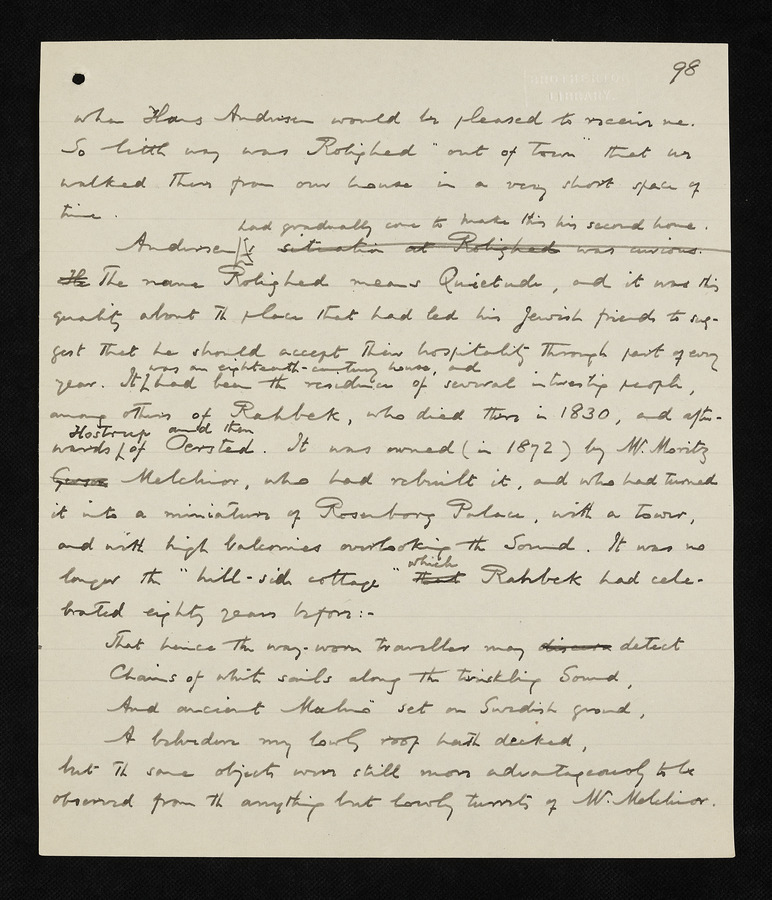 98
BROTHERTON
LIBRARY
when Hans Andersen would be pleased to receive me.
So little way was Rolighed "out of town" that we
walked there from our house in a very short space of
time.
had gradually come to make this his second home.
Andersen's situation at Rolighed was curious.
He The name Rolighed means Quietude, and it was this
quality about the place that had led his Jewish friends to sug-
gest that he should accept their hospitality through part of every
was an eighteenth-century house, and
year. It had been the residence of several interesting people,
among others of Rahbek, who died there in 1830, and after-
Hostrup and then
wards of Oersted. It was owned (in 1872) by Mr. Moritz
Melchior, who had rebuilt it, and who had turned
it into a miniature of Rosenborg Palace, with a tower,
and with high balconies overlooking the Sound. It was no
which
longer the "hill-side cottage" that Rahbek had cele-
brated eighty years before:-
That hence the way-worn traveller may discern detect
Chains of white sails along the twinkling Sound,
And ancient Malmö set on Swedish ground,
A belvedere my lowly roof hath decked,
but the same objects were still more advantageously to be
observed from the anything but lowly turrets of Mr. Melchior.